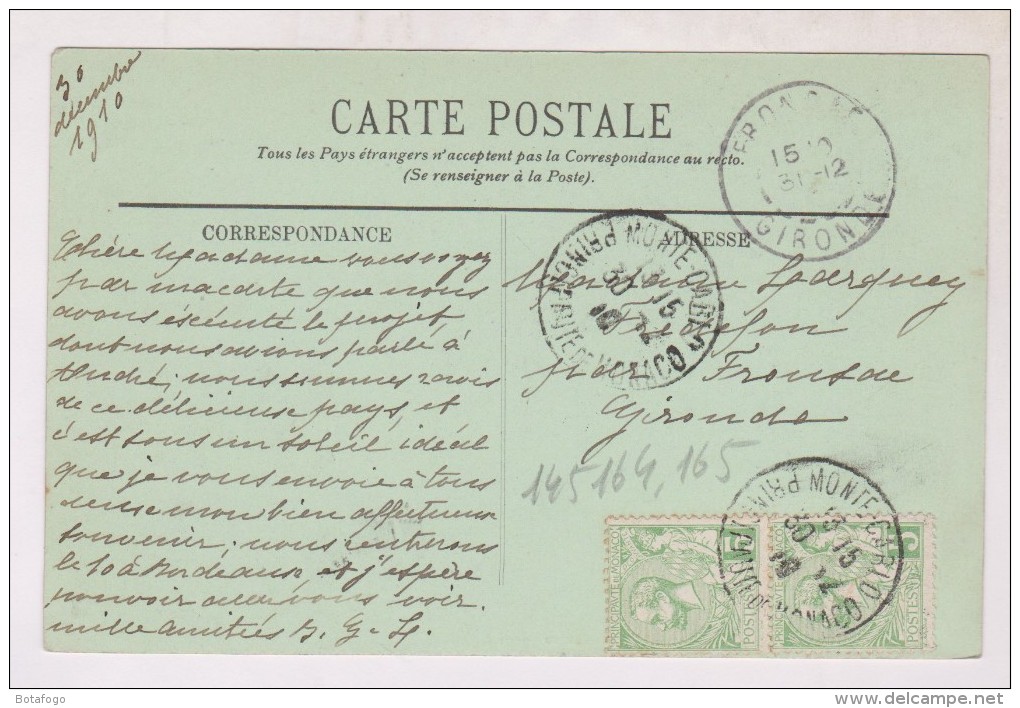 30
décembre
1910
CARTE POSTALE
Tous les Pays étrangers n'acceptent pas la Correspondance au recto.
(Se renseigner à la Poste).
FRONSAC
15
31-12
GIRONDE
CORRESPONDANCE
ADRESSE
Chère Madame vous voyez
par ma carte que nous
avons éxécuté le projet
dont nous avions parlé à
André; nous sommes ravis
de ce délicieux pays, et
c'est sous un soleil idéal
que je vous envoie à tous
deux mon bien affectueux
souvenir; nous rentrerons
le 10 à Bordeaux, et j'espère
pouvoir aller vous voir.
mille amitiés
Madame
par Fronsac
Gironde
MONTE-CARLO
13 15
30 12
10
PRINCIPAUTE DE MONACO
145 164, 165
MONTE-CARLO
13 15
30 12
10
PRINCIPAUTE DE MONACO
PRINCIPAUTE DE MONACO
5
POSTES
PRINCIPAUTE DE MONACO
5
POSTES
Botafogo
www.delcampe.net